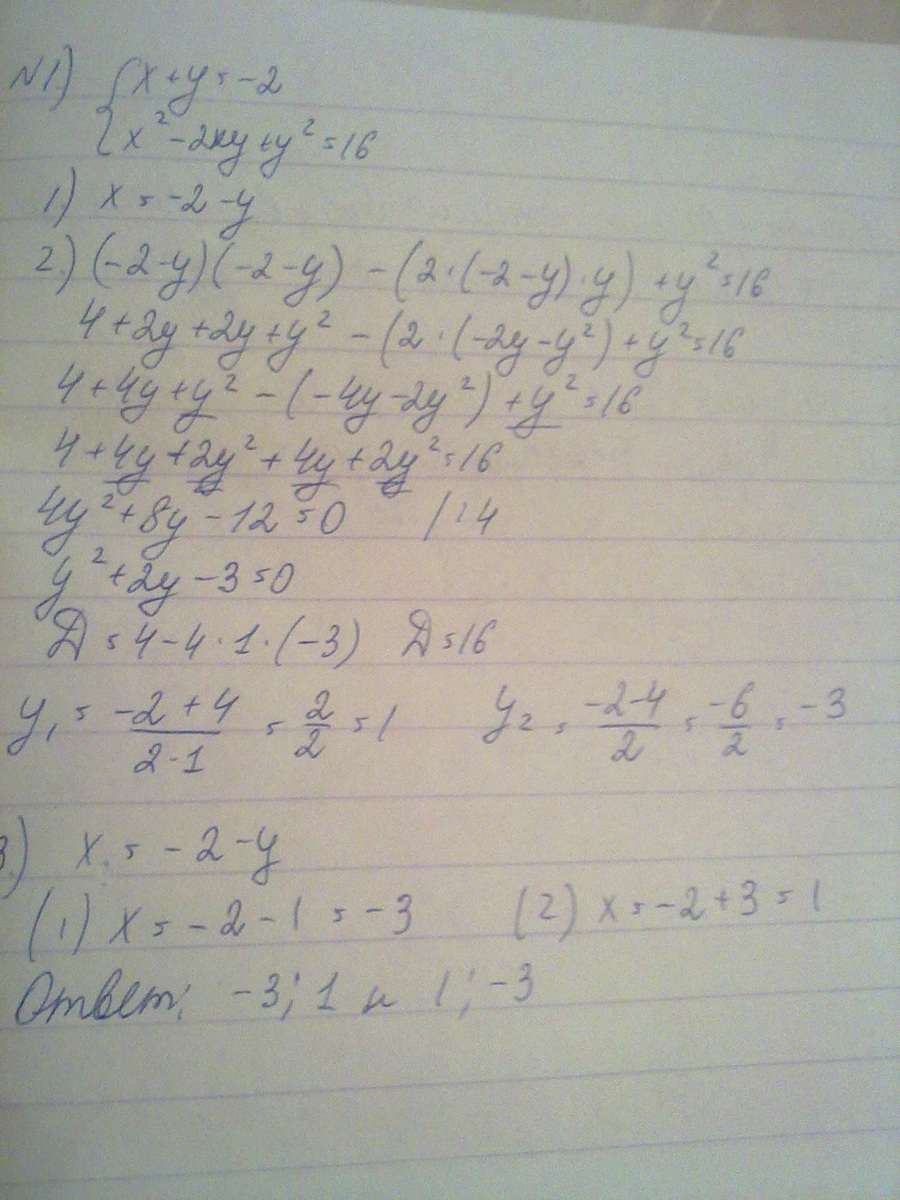 N1) { x + y = -2
{ x² - 2xy + y² = 16
1) x = -2 - y
2.) (-2-y)(-2-y) - (2·(-2-y)·y) + y² = 16
4 + 2y + 2y + y² - (2·(-2y-y²) + y² = 16
4 + 4y + y² - (-4y-2y²) + y² = 16
4 + 4y + 2y² + 4y + 2y² = 16
4y² + 8y - 12 = 0 /:4
y² + 2y - 3 = 0
D = 4 - 4·1·(-3) D = 16
y₁ = (-2+4)/(2·1) = 2/2 = 1 y₂ = (-2-4)/2 = -6/2 = -3
3.) x = -2 - y
(1) x = -2 - 1 = -3 (2) x = -2 + 3 = 1
Ответ: -3; 1 и 1; -3